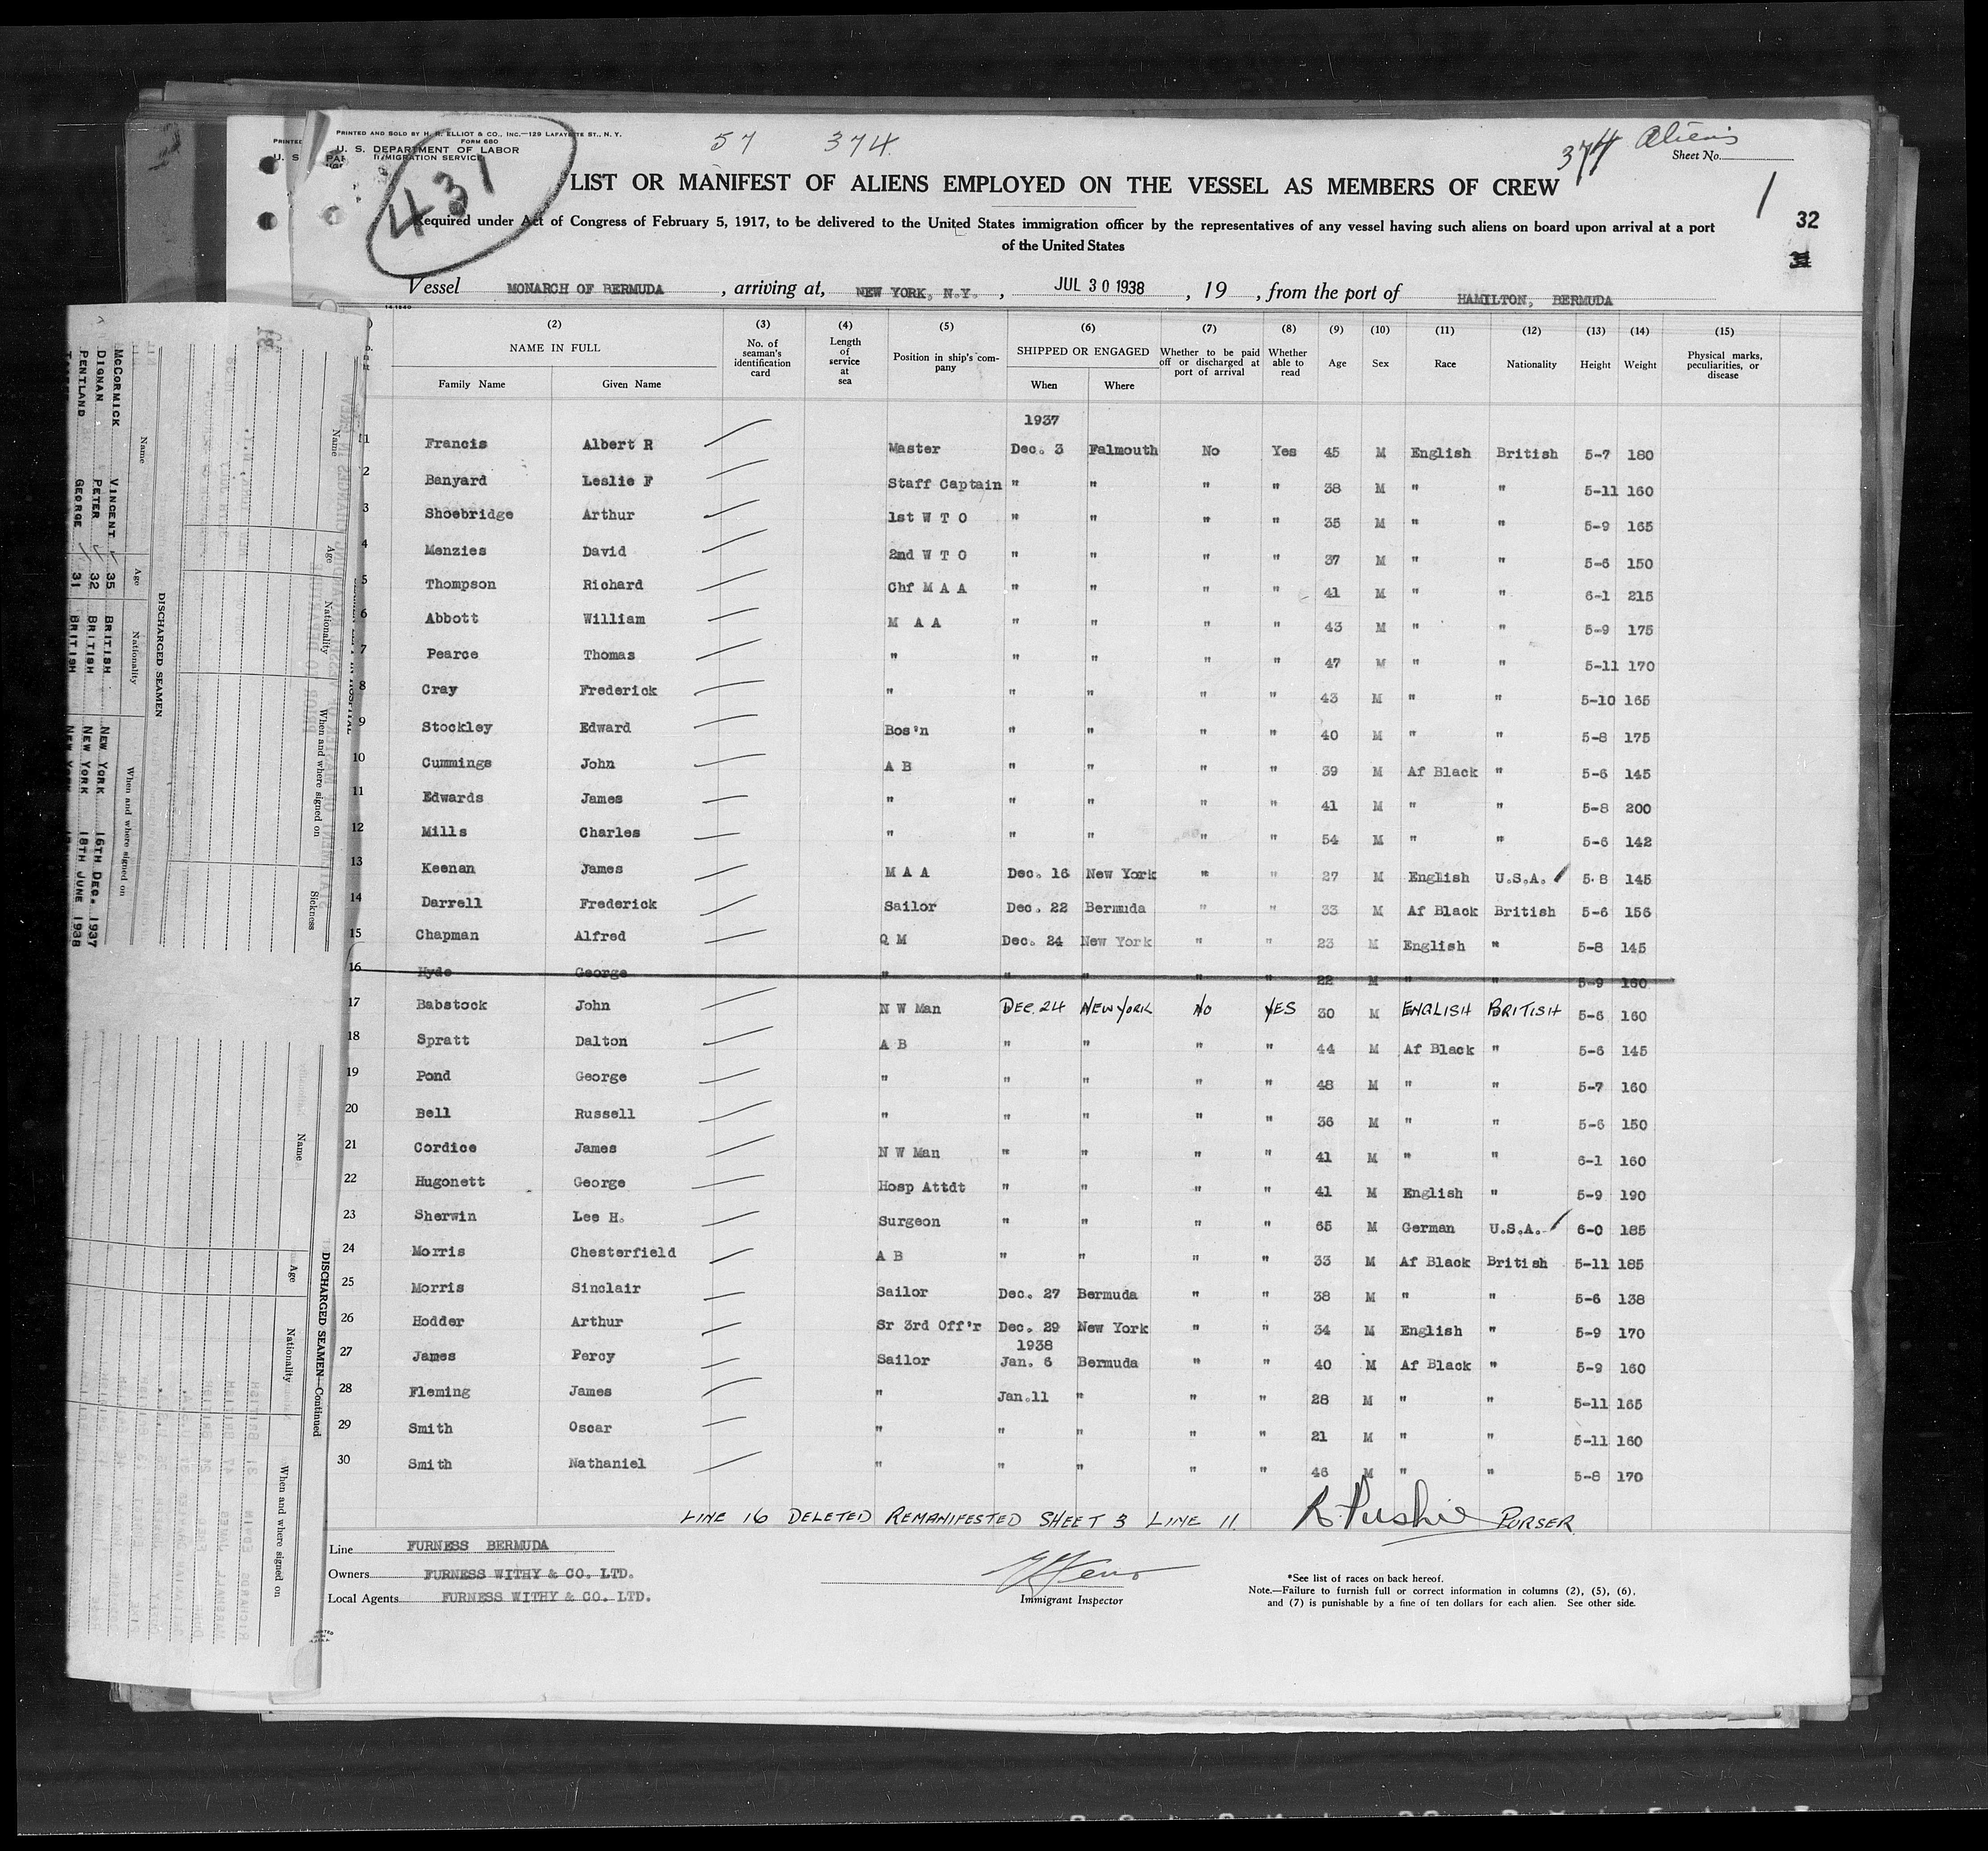 PRINTED AND SOLD BY H. R. ELLIOT & CO., INC.—129 LAFAYETTE ST., N. Y.
FORM 680
U. S. DEPARTMENT OF LABOR
IMMIGRATION SERVICE
431
57 374
374 Aliens
Sheet No.
1
32
LIST OR MANIFEST OF ALIENS EMPLOYED ON THE VESSEL AS MEMBERS OF CREW
Required under Act of Congress of February 5, 1917, to be delivered to the United States immigration officer by the representatives of any vessel having such aliens on board upon arrival at a port
of the United States
Vessel MONARCH OF BERMUDA, arriving at, NEW YORK, N.Y., JUL 30 1938, 19 , from the port of HAMILTON, BERMUDA
(2) (3) (4) (5) (6) (7) (8) (9) (10) (11) (12) (13) (14) (15)
NAME IN FULL
Family Name Given Name
No. of seaman's identification card
Length of service at sea
Position in ship's company
SHIPPED OR ENGAGED
When Where
Whether to be paid off or discharged at port of arrival
Whether able to read
Age Sex Race Nationality Height Weight
Physical marks, peculiarities, or disease
1937
1 Francis Albert R Master Dec. 3 Falmouth No Yes 45 M English British 5-7 180
2 Banyard Leslie F Staff Captain " " " " 38 M " " 5-11 160
3 Shoebridge Arthur 1st W T O " " " " 35 M " " 5-9 165
4 Menzies David 2nd W T O " " " " 37 M " " 5-6 150
5 Thompson Richard Chf M A A " " " " 41 M " " 6-1 215
6 Abbott William M A A " " " " 43 M " " 5-9 175
7 Pearce Thomas " " " " " 47 M " " 5-11 170
8 Cray Frederick " " " " " 43 M " " 5-10 165
9 Stockley Edward Bos'n " " " " 40 M " " 5-8 175
10 Cummings John A B " " " " 39 M Af Black " 5-6 145
11 Edwards James " " " " " 41 M " " 5-8 200
12 Mills Charles " " " " " 54 M " " 5-6 142
13 Keenan James M A A Dec. 16 New York " " 27 M English U.S.A. 5-8 145
14 Darrell Frederick Sailor Dec. 22 Bermuda " " 33 M Af Black British 5-6 156
15 Chapman Alfred Q M Dec. 24 New York " " 23 M English " 5-8 145
16 Hyde George " " " " " 22 M " " 5-9 160
17 Babstock John N W Man DEC. 24 NEW YORK NO YES 30 M ENGLISH BRITISH 5-6 160
18 Spratt Dalton A B " " " " 44 M Af Black " 5-6 145
19 Pond George " " " " " 48 M " " 5-7 160
20 Bell Russell " " " " " 36 M " " 5-6 150
21 Cordice James N W Man " " " " 41 M " " 6-1 160
22 Hugonett George Hosp Attdt " " " " 41 M English " 5-9 190
23 Sherwin Lee H. Surgeon " " " " 65 M German U.S.A. 6-0 185
24 Morris Chesterfield A B " " " " 33 M Af Black British 5-11 185
25 Morris Sinclair Sailor Dec. 27 Bermuda " " 38 M " " 5-6 138
26 Hodder Arthur Sr 3rd Off'r Dec. 29 New York " " 34 M English " 5-9 170
1938
27 James Percy Sailor Jan. 6 Bermuda " " 40 M Af Black " 5-9 160
28 Fleming James " Jan.11 " " " 28 M " " 5-11 165
29 Smith Oscar " " " " " 21 M " " 5-11 160
30 Smith Nathaniel " " " " " 46 M " " 5-8 170
LINE 16 DELETED REMANIFESTED SHEET 3 LINE 11. R. Pushie PURSER
Line FURNESS BERMUDA
Owners FURNESS WITHY & CO. LTD.
Local Agents FURNESS WITHY & CO. LTD.
Immigrant Inspector
*See list of races on back hereof.
Note.—Failure to furnish full or correct information in columns (2), (5), (6),
and (7) is punishable by a fine of ten dollars for each alien. See other side.
DISCHARGED SEAMEN
Name Age Nationality When and where signed on
McCORMICK VINCENT 35 BRITISH NEW YORK 16TH DEC. 1937
DIGNAN PETER 32 BRITISH NEW YORK 18TH JUNE 1938
PENTLAND GEORGE 31 BRITISH NEW YORK
Name Age Nationality When and where signed on Sickness
DISCHARGED SEAMEN—Continued
Name Age Nationality When and where signed on